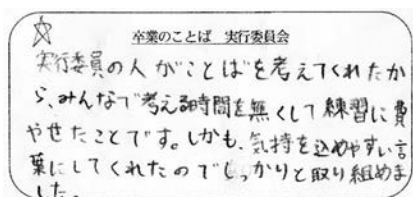 卒業のことば 実行委員会
実行委員の人がことばを考えてくれたか
ら、みんなで考える時間を無くして練習に費
やせたことです。しかも、気持を込めやすい言
葉にしてくれたのでしっかりと取り組めま
した。